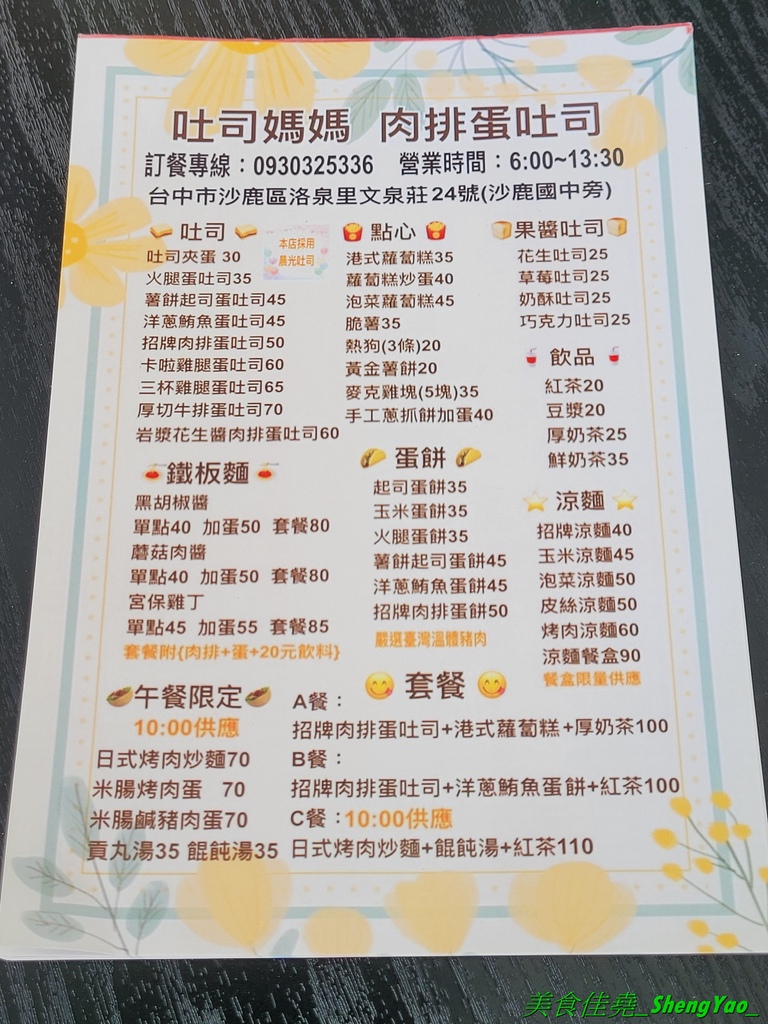 吐司媽媽 肉排蛋吐司
訂餐專線：0930325336 營業時間：6:00~13:30
台中市沙鹿區洛泉里文泉莊24號(沙鹿國中旁)
吐司
本店採用
晨光吐司
吐司夾蛋 30
火腿蛋吐司35
薯餅起司蛋吐司45
洋蔥鮪魚蛋吐司45
招牌肉排蛋吐司50
卡啦雞腿蛋吐司60
三杯雞腿蛋吐司65
厚切牛排蛋吐司70
岩漿花生醬肉排蛋吐司60
點心
港式蘿蔔糕35
蘿蔔糕炒蛋40
泡菜蘿蔔糕45
脆薯35
熱狗(3條)20
黃金薯餅20
麥克雞塊(5塊)35
手工蔥抓餅加蛋40
果醬吐司
花生吐司25
草莓吐司25
奶酥吐司25
巧克力吐司25
飲品
紅茶20
豆漿20
厚奶茶25
鮮奶茶35
鐵板麵
黑胡椒醬
單點40 加蛋50 套餐80
蘑菇肉醬
單點40 加蛋50 套餐80
宮保雞丁
單點45 加蛋55 套餐85
套餐附{肉排+蛋+20元飲料}
蛋餅
起司蛋餅35
玉米蛋餅35
火腿蛋餅35
薯餅起司蛋餅45
洋蔥鮪魚蛋餅45
招牌肉排蛋餅50
嚴選臺灣溫體豬肉
涼麵
招牌涼麵40
玉米涼麵45
泡菜涼麵50
皮絲涼麵50
烤肉涼麵60
涼麵餐盒90
餐盒限量供應
午餐限定
10:00供應
日式烤肉炒麵70
米腸烤肉蛋 70
米腸鹹豬肉蛋70
貢丸湯35 餛飩湯35
套餐
A餐：
招牌肉排蛋吐司+港式蘿蔔糕+厚奶茶100
B餐：
招牌肉排蛋吐司+洋蔥鮪魚蛋餅+紅茶100
C餐：10:00供應
日式烤肉炒麵+餛飩湯+紅茶110
美食佳堯_ShengYao_